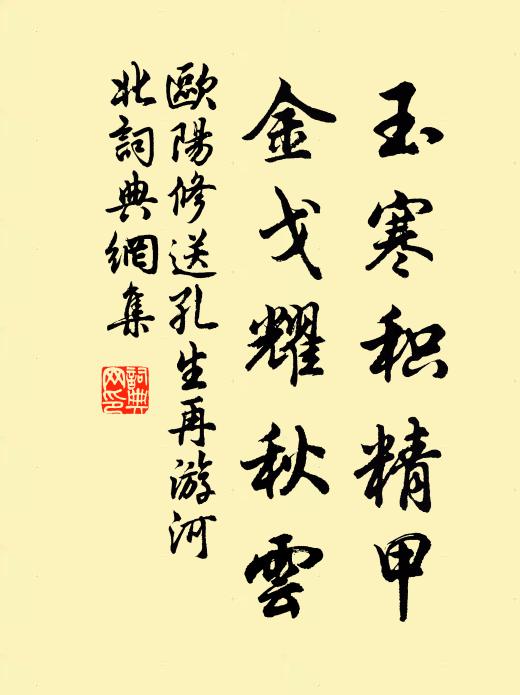 玉寒积精甲
金戈耀秋雲
歐陽修送孔生再游河
北詞典網集
詞典
网印